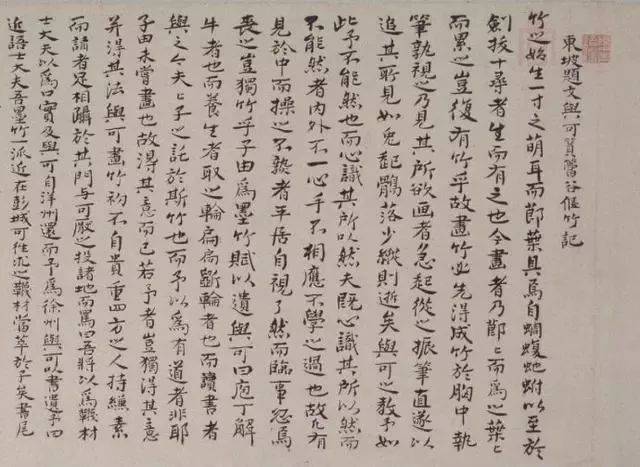 東坡題文與可篔簹谷偃竹記
竹之始生一寸之萌耳而節葉具焉自蜩蝮蛇蚹以至於
劍拔十尋者生而有之也今畫者乃節〻而為之葉〻
而累之豈復有竹乎故畫竹必先得成竹於胸中執
筆孰視之乃見其所欲画者急起從之振筆直遂以
追其所見如兔起鶻落少縱則逝矣與可之教予如
此予不能然也而心識其所以然夫既心識其所以然而
不能然者內外不一心手不相應不學之過也故凡有
見於中而操之不熟者平居自視了然而臨事忽焉
喪之豈獨竹乎子由為墨竹賦以遺與可曰庖丁解
牛者也而養生者取之輪扁斲輪者也而讀書者
與之今夫〻子之託於斯竹也而予以為有道者非耶
子由未嘗畫也故得其意而已若予者豈獨得其意
并得其法與可畫竹初不自貴重四方之人持縑素
而請者足相躡於其門與可厭之投諸地而罵曰吾將以為韈材
士大夫以為口實及與可自洋州還而予為徐州與可以書遺予曰
近語士大夫吾墨竹一派近在彭城可往求之韈材當萃於子矣書尾